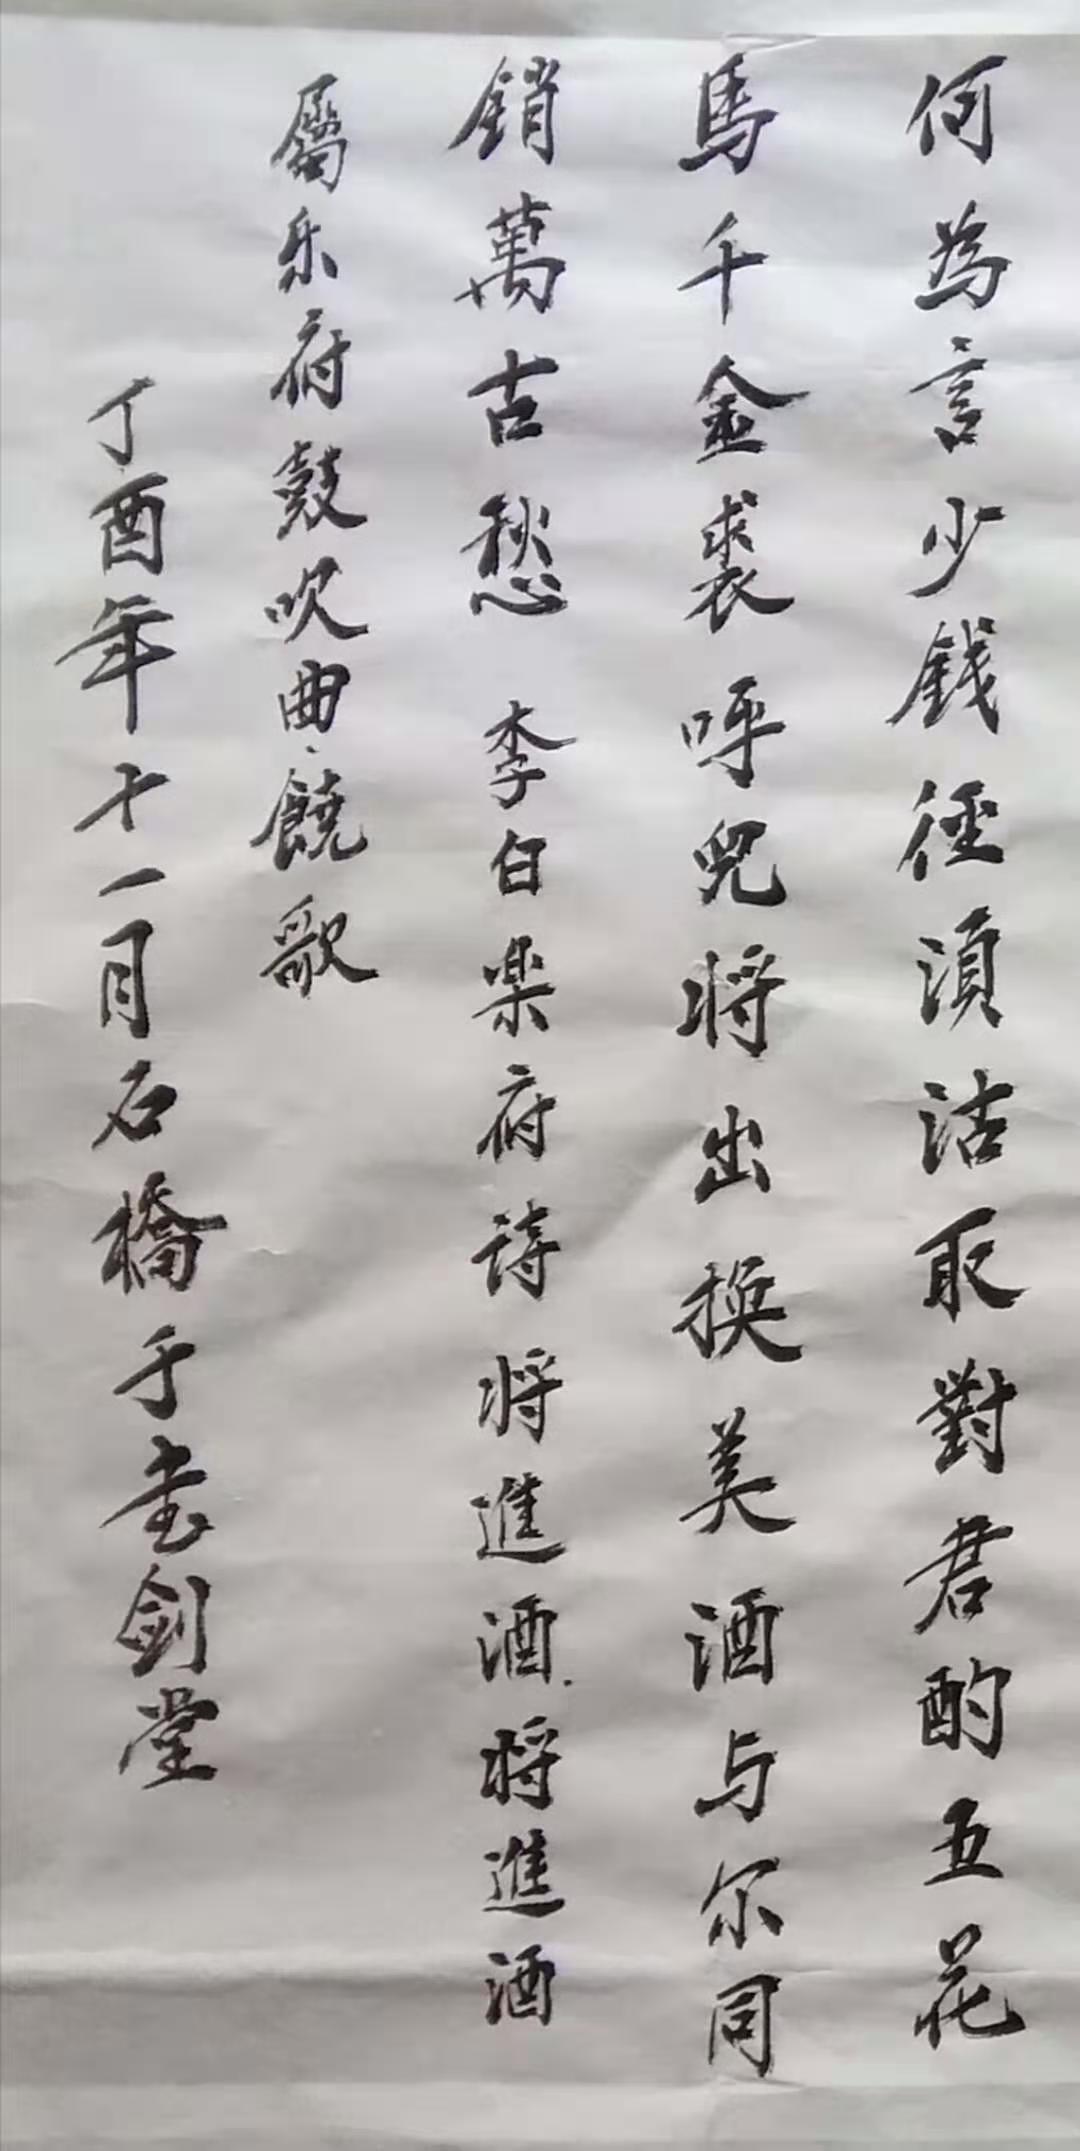 何為言少錢徑須沽取對君酌五花
馬千金裘呼兒將出換美酒与尔同
銷萬古愁 李白楽府詩將進酒.將進酒
屬乐府鼓吹曲、饒歌
丁酉年十一月石橋于书劍堂